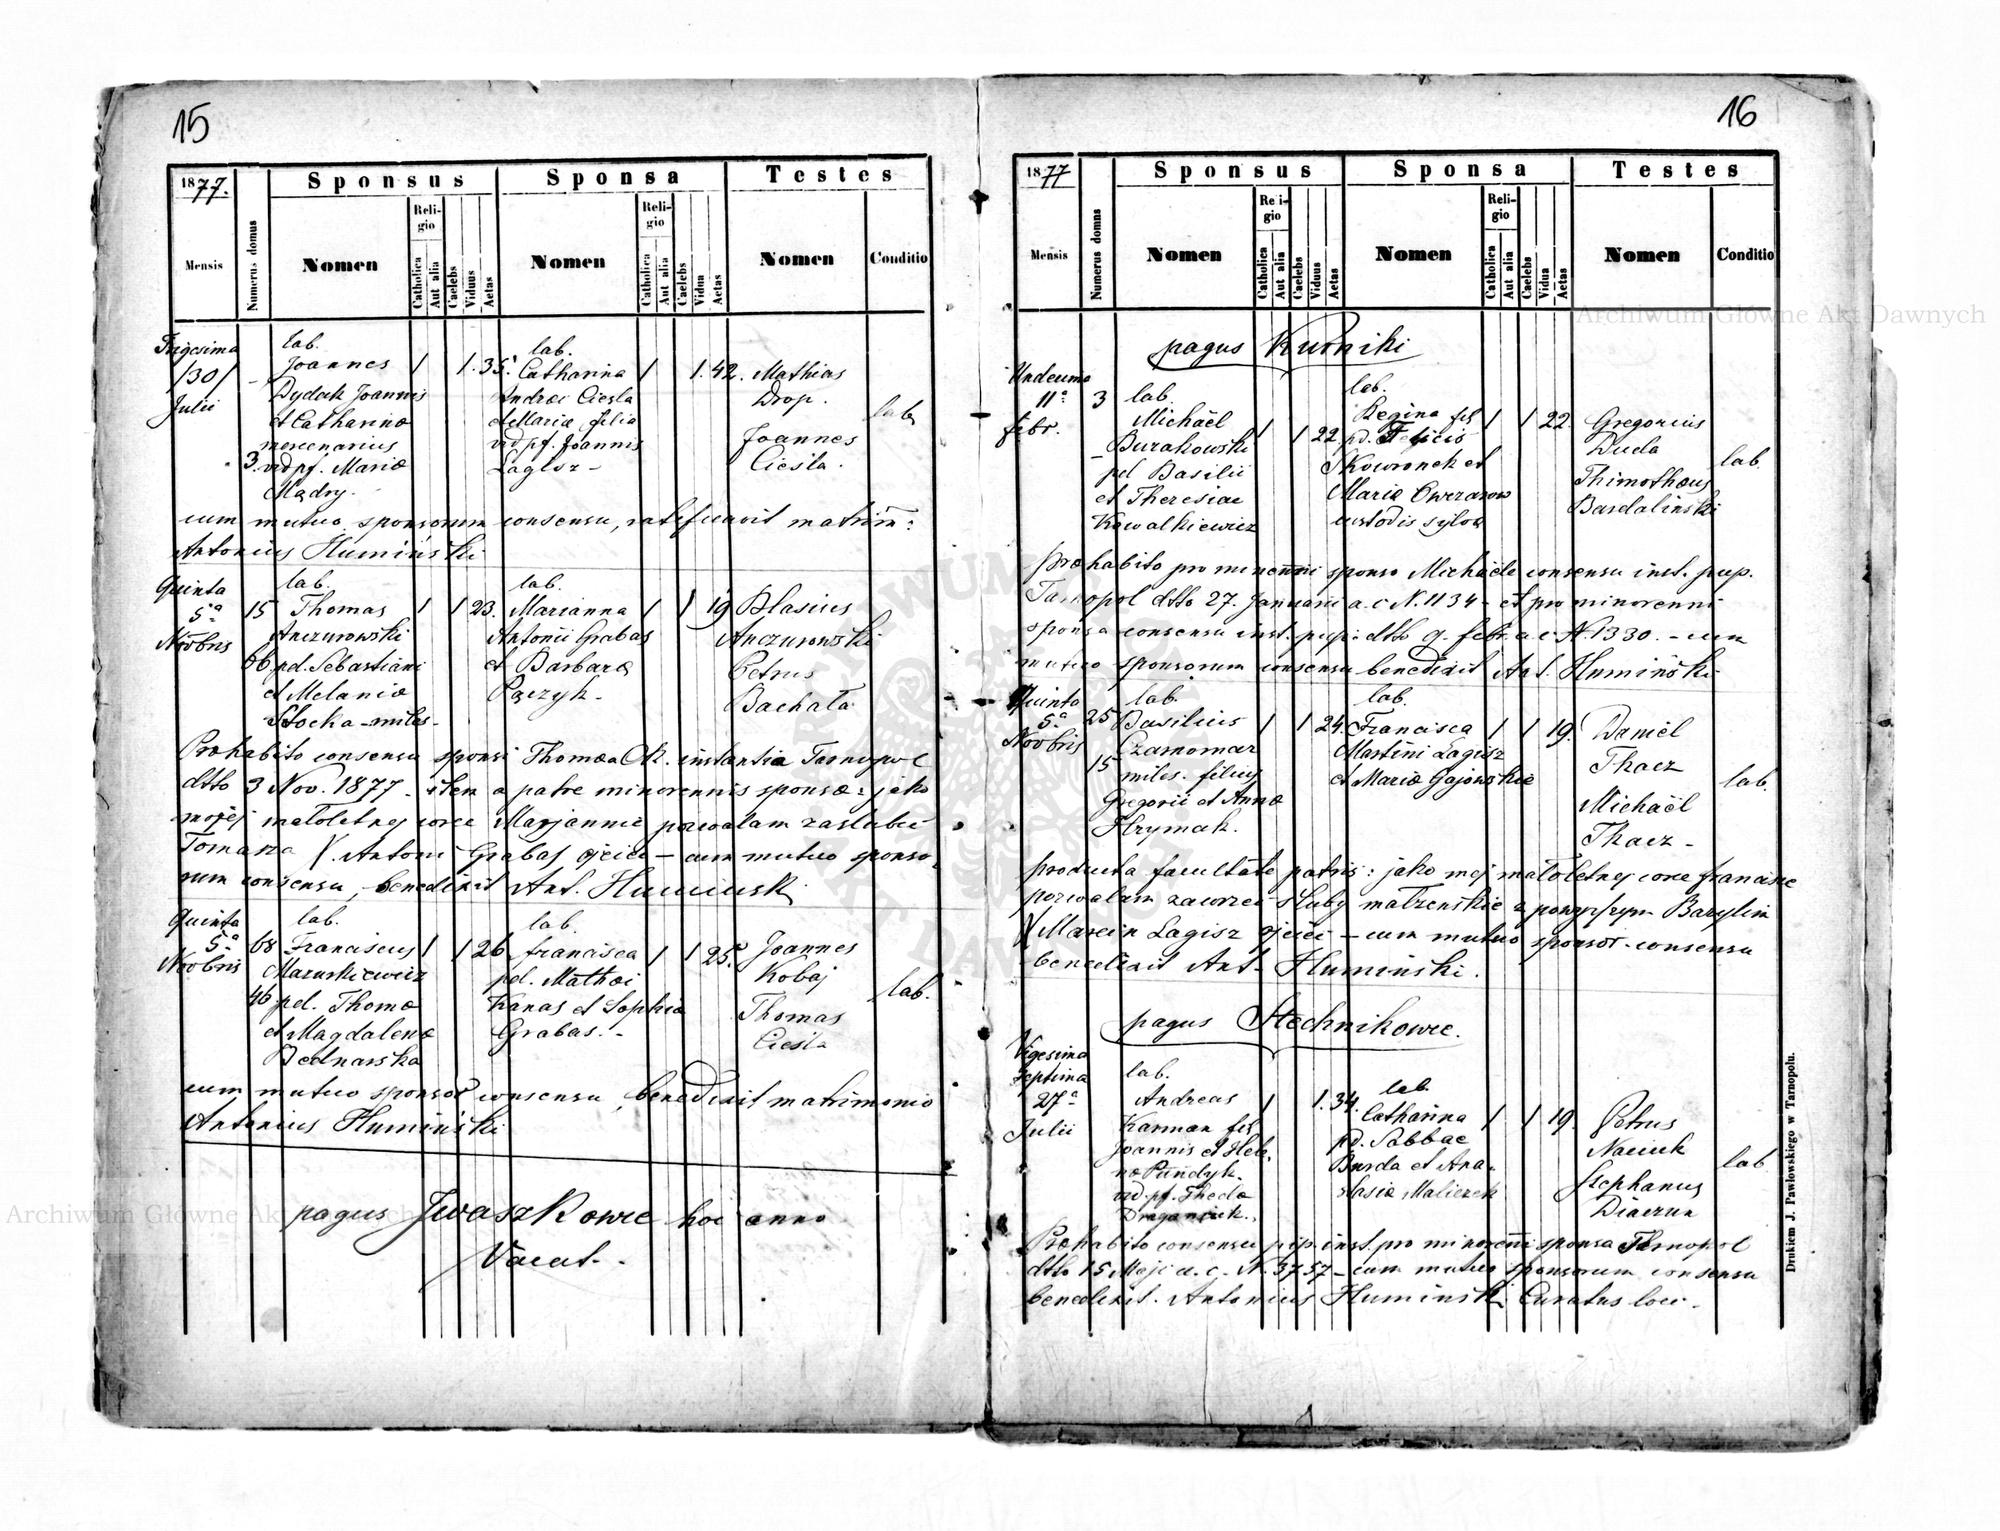 15
1877.
Sponsus
Sponsa
Testes
Mensis
Numerus domus
Nomen
Religio
Catholica
Aut alia
Caelebs
Viduus
Aetas
Nomen
Religio
Catholica
Aut alia
Caelebs
Vidua
Aetas
Nomen
Conditio
Trigesima
/30/
Julii
3.
lab.
Joannes
Dydak Joannis
et Catharinæ
mercenarius
vid pf. Mariæ
Mądry.
1 1. 35.
lab.
Catharina
Andreæ Ciesla
et Mariæ filia
vid pf. Joannis
Łagisz -
1 1. 42.
Mathias
Drop.
Joannes
Cieśla.
lab.
cum mutuo sponsorum consensu, ratificavit matrim:
Antonius Humiński
Quinta
5ª
Novbris
15
66
lab.
Thomas
Anczurowski
pd. Sebastiani
et Melaniæ
Stocka - miles -
1 1 23.
lab.
Marianna
Antonii Grabas
et Barbaræ
Pączyk -
1 1 19
Blasius
Anczurowski
Petrus
Bachała
Præhabito consensu sponsi Thomæ a Ok. instantia Tarnopol
dtto 3 Nov. 1877 - item a patre minorennis sponsæ: jako
mojéj małoletnej córce Marjannie pozwalam zaślubić
Tomasza X. Antoni Grabas ojciec - cum mutuo sponso-
rum consensu, benedixit Ant. Humiński
Quinta
5ª
Novbris
68
46
lab.
Franciscus
Mazurkiewicz
pd. Thomæ
et Magdalenæ
Bednarska
1 1 26
lab.
Francisca
pd. Mathæi
Kanas et Sophia
Grabas. -
1 1 25.
Joannes
Kobaj
Thomas
Cieśla
lab.
cum mutuo sponsor consensu, benedixit matrimonio
Antonius Humiński
pagus Iwaszkowce hoc anno
Vacat. -
16
1877
Sponsus
Sponsa
Testes
Mensis
Numerus domus
Nomen
Religio
Catholica
Aut alia
Caelebs
Viduus
Aetas
Nomen
Religio
Catholica
Aut alia
Caelebs
Vidua
Aetas
Nomen
Conditio
pagus Kurniki
Undecima
11ª
febr.
3
lab.
Michaël
Burakowski
pd Basilii
et Theresiae
Kowalkiewicz
1 1 22
lab.
Regina fil
pd. Felicis
Skowronek et
Mariæ Owczarow
custodis sylvæ
1 1 22.
Gregorius
Duda
Thimotheus
Bardaliński
lab.
Præhabito pro minorenni sponso Michaële consensu inst. pup.
Tarnopol dtto 27. Januarii a. c N. 1134 - et pro minorenni
sponsa consensu inst. pup: dtto 9. febr. a. c N. 1330. - cum
mutuo sponsorum consensu benedixit Ant. Humiński
Quinta
5ª
Novbris
25
15
lab.
Basilius
Czarnomaz
miles. filius
Gregorii et Annæ
Hrymak.
1 1 24.
lab.
Francisca
Martini Łagisz
et Mariæ Gajowskie
1 1 19.
Daniel
Tkacz
Michaël
Tkacz -
lab.
producta facultate patris: jako mej małoletnej córce Francisce
pozwalam zawrzeć śluby małżeńskie z powyższym Bazylim
X Marcin Łagisz ojciec - cum mutuo sponsor. consensu
benedixit Ant. Humiński.
pagus Stechnikowce.
Vigesima
septima
27ª
Julii
lab.
Andreas
Karman fil
Joannis et Hele-
næ Pundyk.
vid. pf. Thecla
1. 34.
lab.
Catharina
pd. Sabbae
Burda et Ana-
stasiæ Maliczek
1 1 19.
Petrus
Stephanus
lab
Præhabito consensu pup. inst. pro minorenni sponsa Tarnopol
dtto 15 Maji a. c. N. 3757 - cum mutuo sponsorum consensu
benedixit. Antonius Humiński Curatus loci -
Drukiem J. Pawłowskiego w Tarnopolu.
Archiwum Główne Akt Dawnych
Archiwum Główne Akt Dawnych